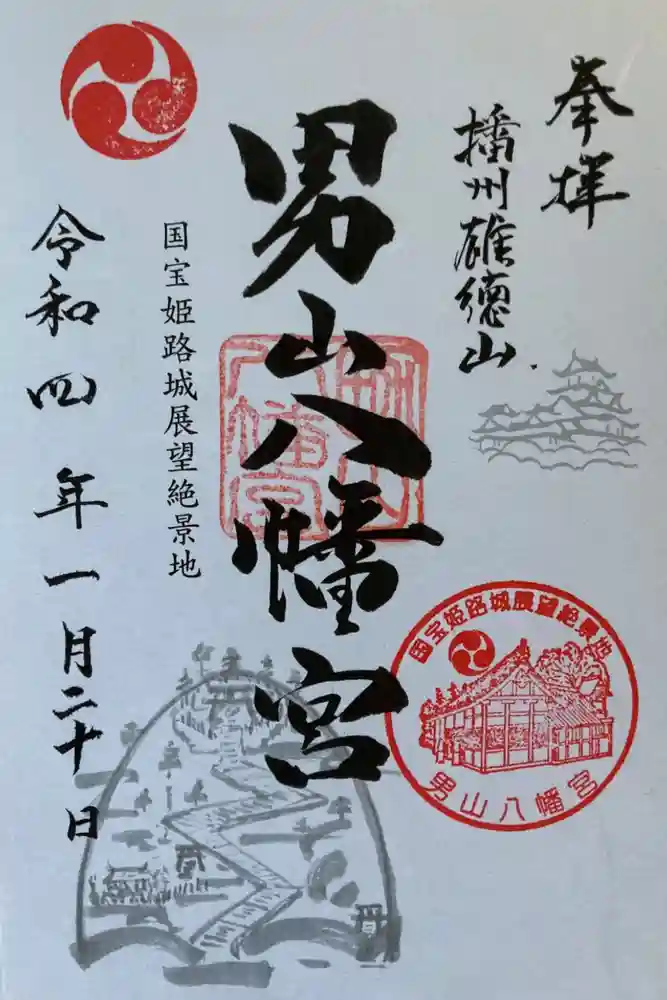 奉拝
播州雄徳山
男山八幡宮
国宝姫路城展望絶景地
令和四年一月二十日
八幡宮
国宝姫路城展望絶景地
男山八幡宮